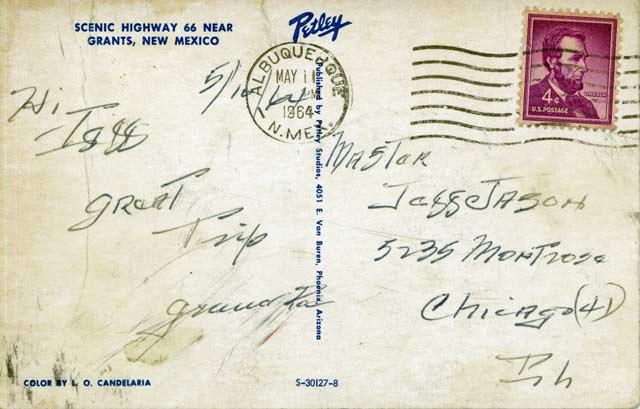 SCENIC HIGHWAY 66 NEAR
GRANTS, NEW MEXICO
Petley
ALBUQUERQUE
MAY 1
1964
N. MEX.
LINCOLN
4¢
U.S. POSTAGE
5/10/64
Hi
Jess
Great
Trip
Grand Pa
Published by Petley Studios, 4051 E. Van Buren, Phoenix, Arizona
Master
Jess Jason
5235 Montrose
Chicago (41)
Ill
COLOR BY L. O. CANDELARIA
S-30127-8